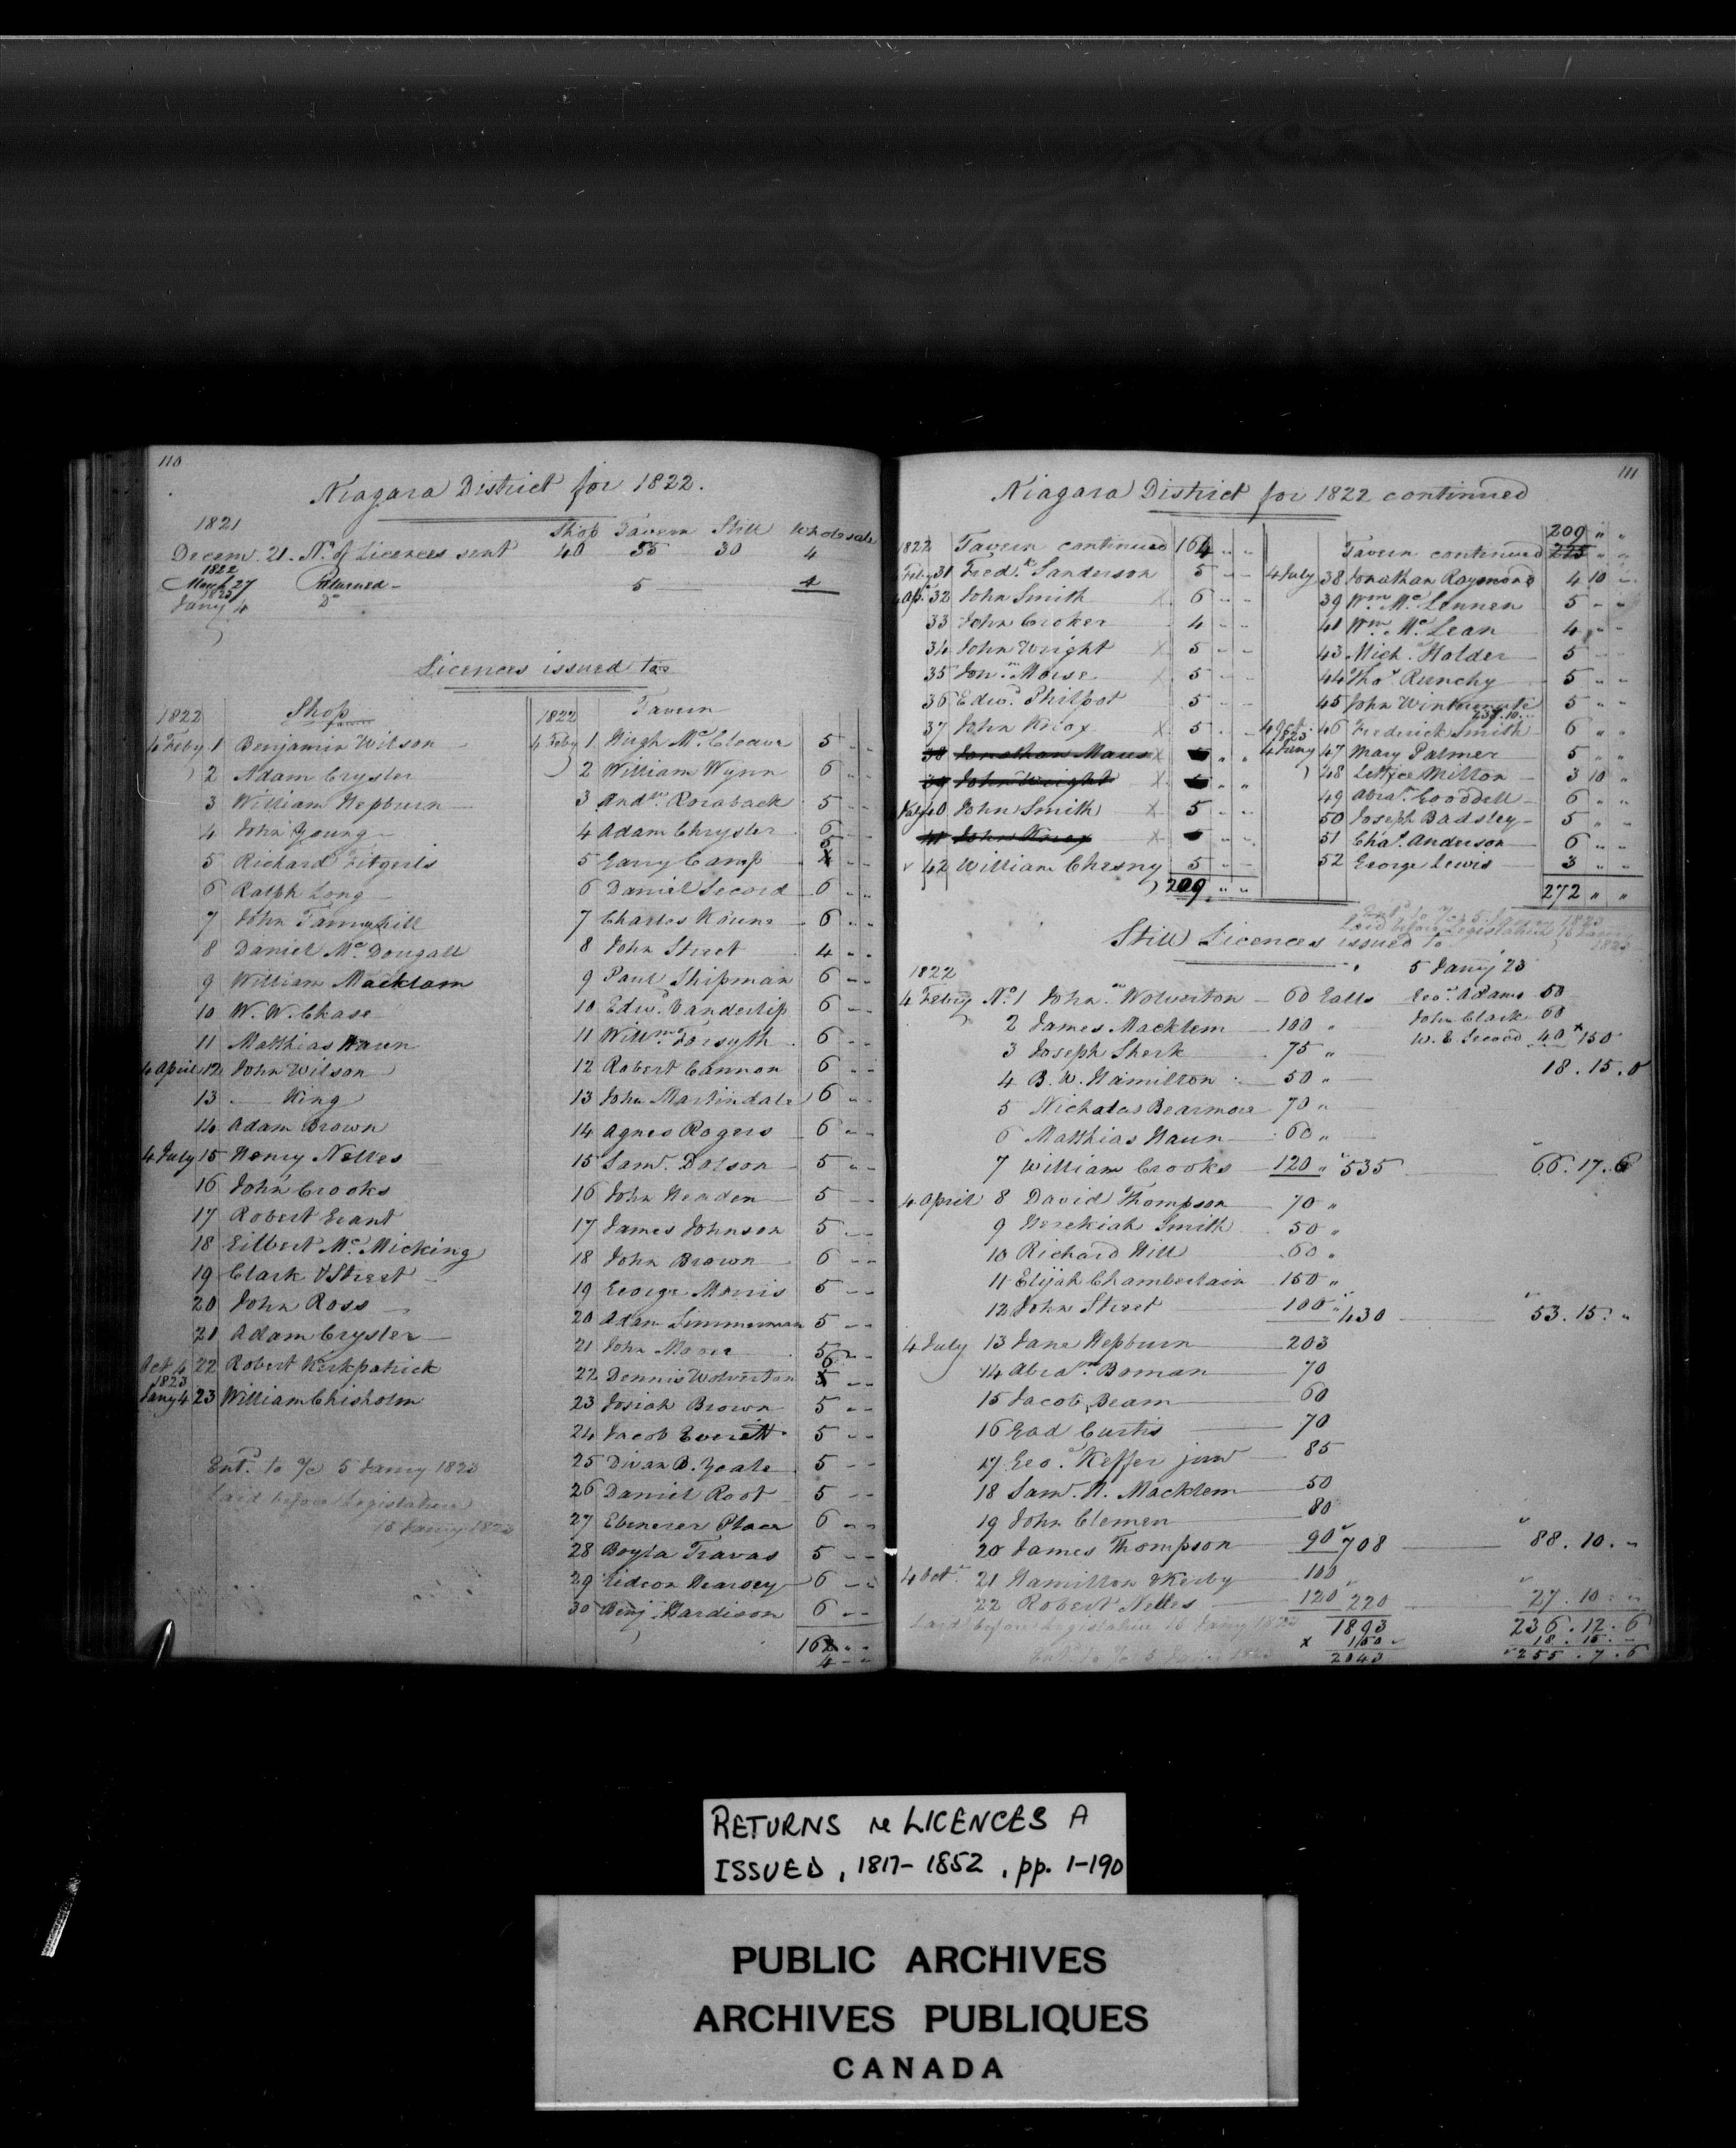 110
Niagara District for 1822.
1821 Shop Tavern Still Wholesale
Decem. 21. No. of Licences sent 40 55 30 4
1822
March 27 Returned - 5 4
1823
Jany 4 Do
Licences issued to
1822 Shop
4 Feby 1 Benjamin Wilson
2 Adam Crysler
3 William Hepburn
4 John Young
5 Richard Fitgerls
6 Ralph Long
7 John Tannahill
8 Daniel Mc Dougall
9 William Macklam
10 W. W. Chase
11 Matthias Haun
4 April 12 John Wilson
13 — King
14 Adam Brown
4 July 15 Henry Nelles
16 John Crooks
17 Robert Grant
18 Gilbert Mc Micking
19 Clark & Street
20 John Ross
21 Adam Crysler
Oct 4 22 Robert Kirkpatrick
1823
Jany 4 23 William Chisholm
Entd. to a/c 5 Jany 1823
Laid before Legislature
15 Jany 1823
1822 Tavern
4 Feby 1 Hugh Mc Cleave 5 " "
2 William Wynn 6 " "
3 Andw. Roraback 5 " "
4 Adam Chrysler 6 " "
5 Garry Camp 5 " "
6 Daniel Secord 6 " "
7 Charles Koune 6 " "
8 John Street 4 " "
9 Paul Shipman 6 " "
10 Edwd. Vanderlip 6 " "
11 Willm. Forsyth 6 " "
12 Robert Cannon 6 " "
13 John Martindale 6 " "
14 Agnes Rogers 6 " "
15 Saml. Dotson 5 " "
16 John Headen 5 " "
17 James Johnson 5 " "
18 John Brown 6 " "
19 George Morris 5 " "
20 Adam Simmerman 5 " "
21 John Morer 5 " "
22 Dennis Wolverton 6 " "
23 Josiah Brown 5 " "
24 Jacob Everett 5 " "
25 Divan B. Yeale 5 " "
26 Daniel Root 5 " "
27 Ebenezer Place 6 " "
28 Boyla Travas 5 " "
29 Gideon Hearsey 6 " "
30 Benj. Hardison 6 " "
162 " "
4 " "
111
Niagara District for 1822 continued
1822 Tavern continued 164 " "
Feby 31 Fredk. Sanderson 5 " "
4 Apl. 32 John Smith X 6 " "
33 John Croker 4 " "
34 John Wright X 5 " "
35 Jonn. Morse X 5 " "
36 Edwd. Philpot 5 " "
37 John Knox X 5 " "
38 Jonathan Maus X " "
39 John Wright X " "
July 40 John Smith X 5 " "
41 John Knox X " "
42 William Chesny 5 " "
209 " "
209 " "
Tavern continued 225 " "
4 July 38 Jonathan Raymond 4 10 "
39 Wm. Mc Lennen 5 " "
41 Wm. Mc Lean 4 " "
43 Mich. Holder 5 " "
44 Thos. Runchy 5 " "
45 John Wintermute 5 " "
237.10
4 Oct. 46 Frederick Smith 6 " "
1823
4 Jany 47 Mary Palmer 5 " "
48 Lettice Milton 3 10 "
49 Abram. Gooddell 6 " "
50 Joseph Badsley 5 " "
51 Chas. Anderson 6 " "
52 George Lewis 3 " "
272 " "
Entd. to a/c 5 Jany 1823
Laid before Legislature 15 Jany 1823
Still Licences issued to
1822
4 Feby No. 1 John Wolverton 60 Galls
2 James Macklem 100 "
3 Joseph Sherk 75 "
4 B. W. Hamilton 50 "
5 Nicholas Bearmore 70 "
6 Matthias Haun 60 "
7 William Crooks 120 " 535 66.17.6
5 Jany 23
Geo. Adams 50
John Clark 60
W. E. Secord 40 x 150
18.15.0
4 April 8 David Thompson 70 "
9 Hezekiah Smith 50 "
10 Richard Hill 60 "
11 Elijah Chamberlain 150 "
12 John Street 100 " 430 53.15. "
4 July 13 Jane Hepburn 203
14 Abram. Boman 70
15 Jacob Beam 60
16 Gad Curtis 70
17 Geo. Keffer junr 85
18 Saml. H. Macklem 50
19 John Clemen 80
20 James Thompson 90 708 88.10. "
4 Oct. 21 Hamilton & Kerby 100
22 Robert Nelles 120 220 27.10. "
Laid before Legislature 15 Jany 1823 1893 236.12.6
x 150 18.15. "
Entd. to a/c 5 Jany 1823 2043 255.7.6
RETURNS re LICENCES A
ISSUED, 1817-1852, pp. 1-190
PUBLIC ARCHIVES
ARCHIVES PUBLIQUES
CANADA